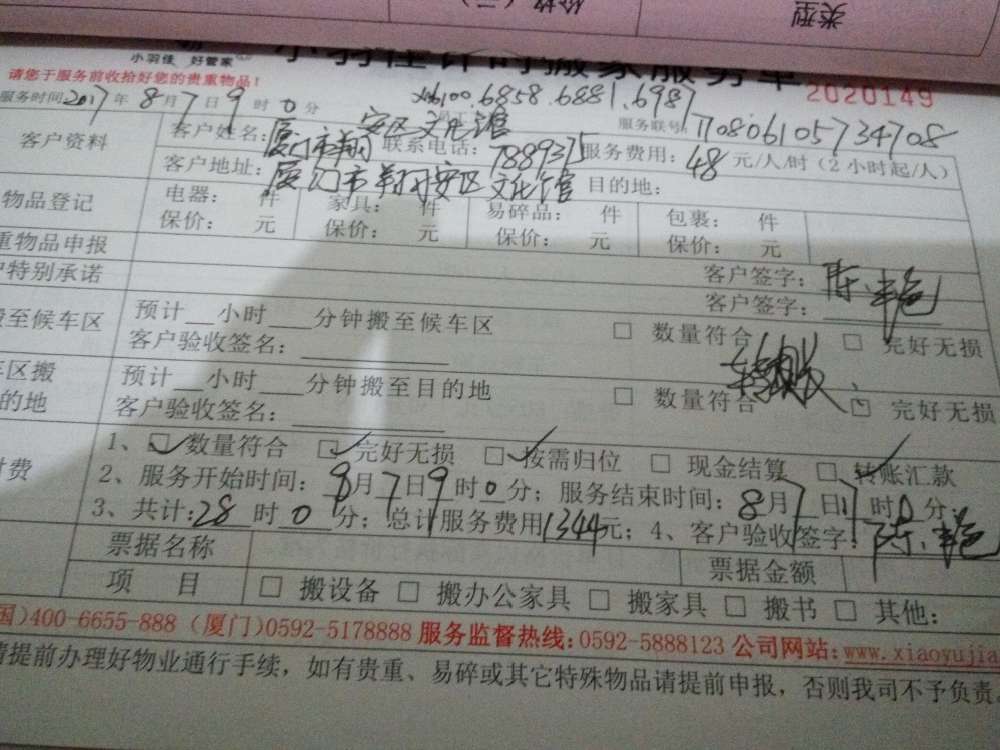 价格（元）
类型
小羽佳 好管家
小羽佳计时搬家服务单
请您于服务前收拾好您的贵重物品！
2020149
服务时间2017年8月7日9时0分
6100.6858.6881.6987
服务联号：770806105734708
客户资料
客户姓名：厦门市翔安区文化馆 联系电话：7889375 服务费用：48元/人/时（2小时起/人）
客户地址：厦门市翔安区文化馆 目的地：
物品登记
电器： 件 家具： 件 易碎品： 件 包裹： 件
保价： 元 保价： 元 保价： 元 保价： 元
重物品申报
客户签字：陈
特别承诺
客户签字：
搬至候车区
预计__小时__分钟搬至候车区 □ 数量符合 □ 完好无损
客户验收签名：
车区搬
的地
预计__小时__分钟搬至目的地 □ 数量符合 □ 完好无损
客户验收签名：
付费
1、☑数量符合 ☑完好无损 ☑按需归位 □ 现金结算 ☑转账汇款
2、服务开始时间：8月7日9时0分；服务结束时间：8月7日11时0分；
3、共计：28时0分；总计服务费用1344元；4、客户验收签字：陈
票据名称 票据金额
项 目 □ 搬设备 □ 搬办公家具 □ 搬家具 □ 搬书 □ 其他：
国)400-6655-888 (厦门)0592-5178888 服务监督热线：0592-5888123 公司网站：www.xiaoyujia
请提前办理好物业通行手续，如有贵重、易碎或其它特殊物品请提前申报，否则我司不予负责。